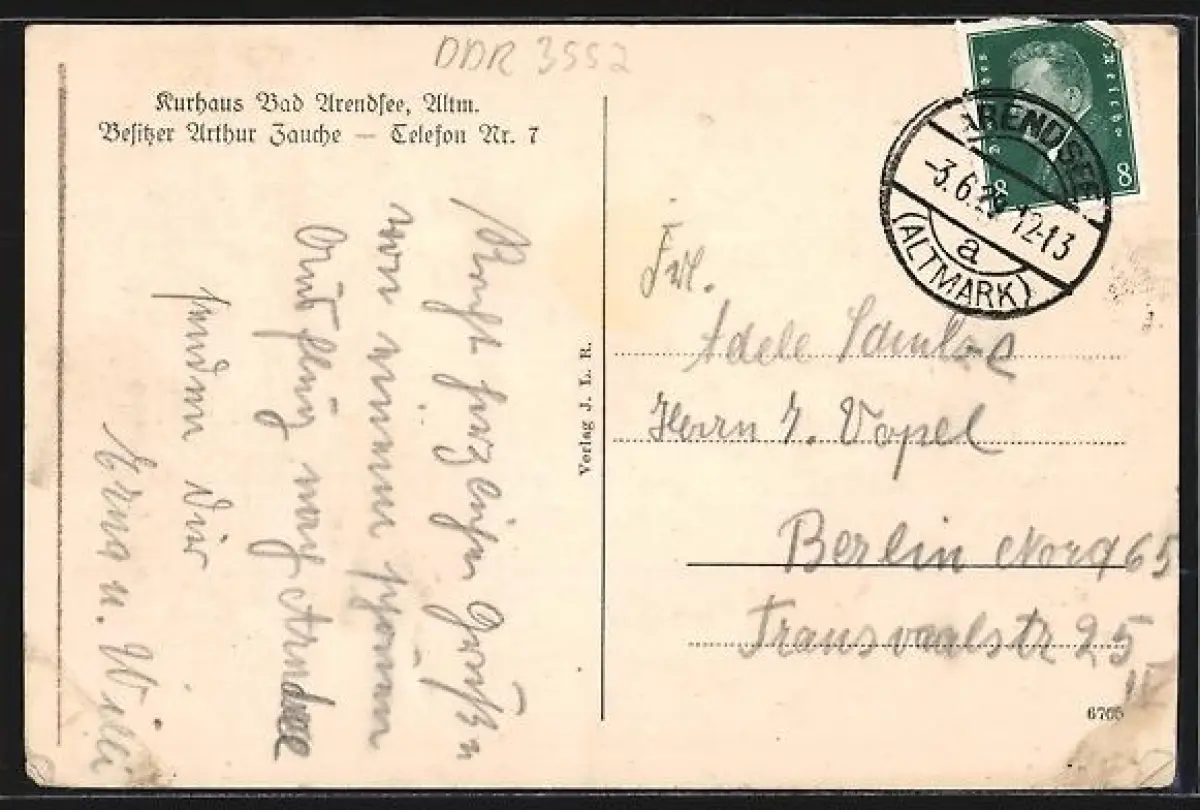 DDR 3552
Kurhaus Bad Arendsee, Altm.
Besitzer Arthur Zauche — Telefon Nr. 7
Recht herzlichen Grüße
von einem schönen
Ausflug nach Arendsee
senden Dir
Erna u. Willi
Verlag J. L. R.
8 8
ARENDSEE
-3.6.29 12-13
a
(ALTMARK)
Frl.
Adele
Herrn J. Vopel
Berlin Nord 65
Transvaalstr 25
6705